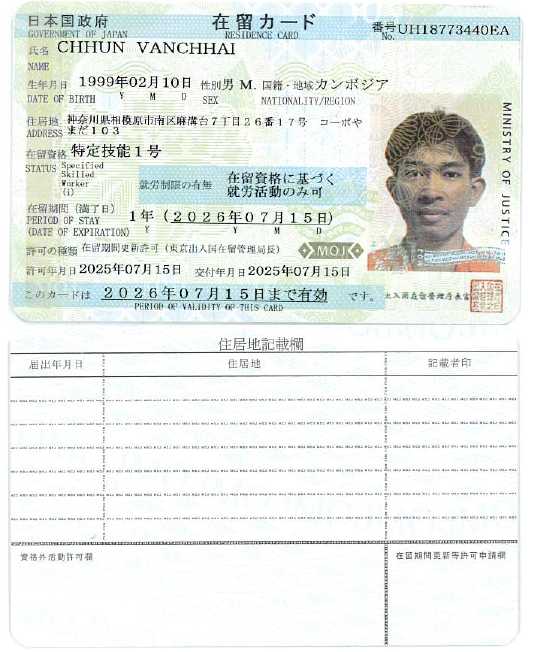 日本国政府 在留カード 番号UH18773440EA
GOVERNMENT OF JAPAN RESIDENCE CARD No.
氏名 CHHUN VANCHHAI
NAME
生年月日 1999年02月10日 性別 男 M. 国籍・地域 カンボジア
DATE OF BIRTH Y M D SEX NATIONALITY/REGION
住居地 神奈川県相模原市南区麻溝台7丁目26番17号 コーポや
ADDRESS まだ103
在留資格 特定技能1号
STATUS Specified
Skilled
Worker
(i)
就労制限の有無 在留資格に基づく
就労活動のみ可
在留期間(満了日) 1年(2026年07月15日)
PERIOD OF STAY Y M D
(DATE OF EXPIRATION)
許可の種類 在留期間更新許可(東京出入国在留管理局長)
MOJ
許可年月日 2025年07月15日 交付年月日 2025年07月15日
このカードは 2026年07月15日まで有効 です。
PERIOD OF VALIDITY OF THIS CARD
MINISTRY OF JUSTICE
出入国在留管理庁長官
住居地記載欄
届出年月日 住居地 記載者印
資格外活動許可欄 在留期間更新等許可申請欄